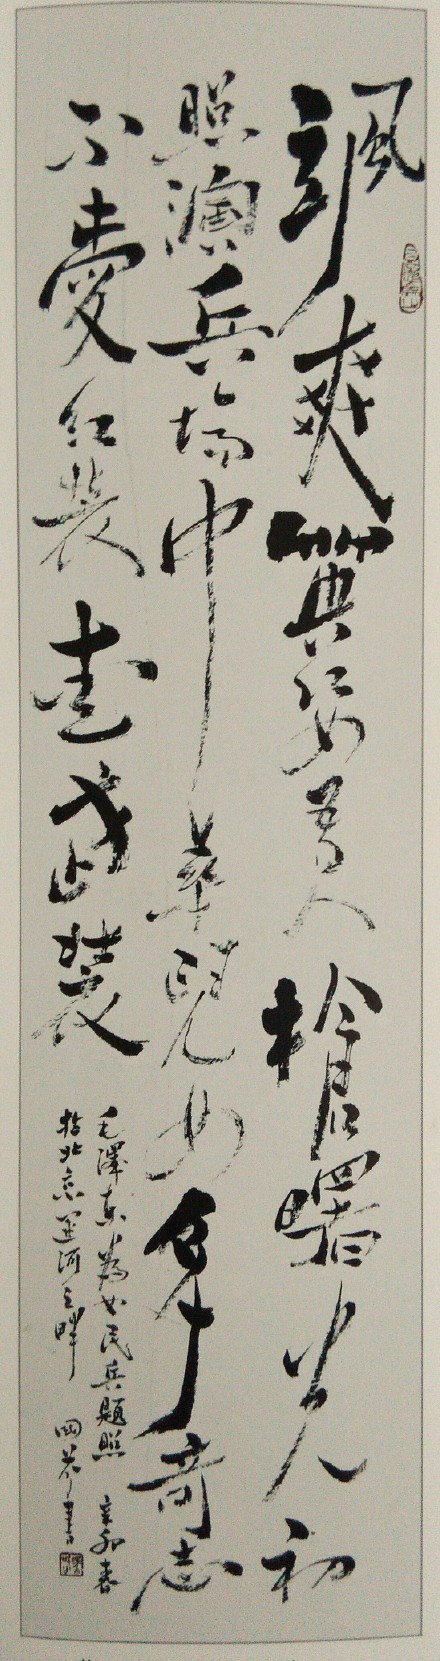 颯爽英姿五尺槍曙光初
照演兵場中華兒女多奇志
不愛紅裝愛武裝
毛澤東為女民兵題照 辛卯春
於北京運河之畔 田書